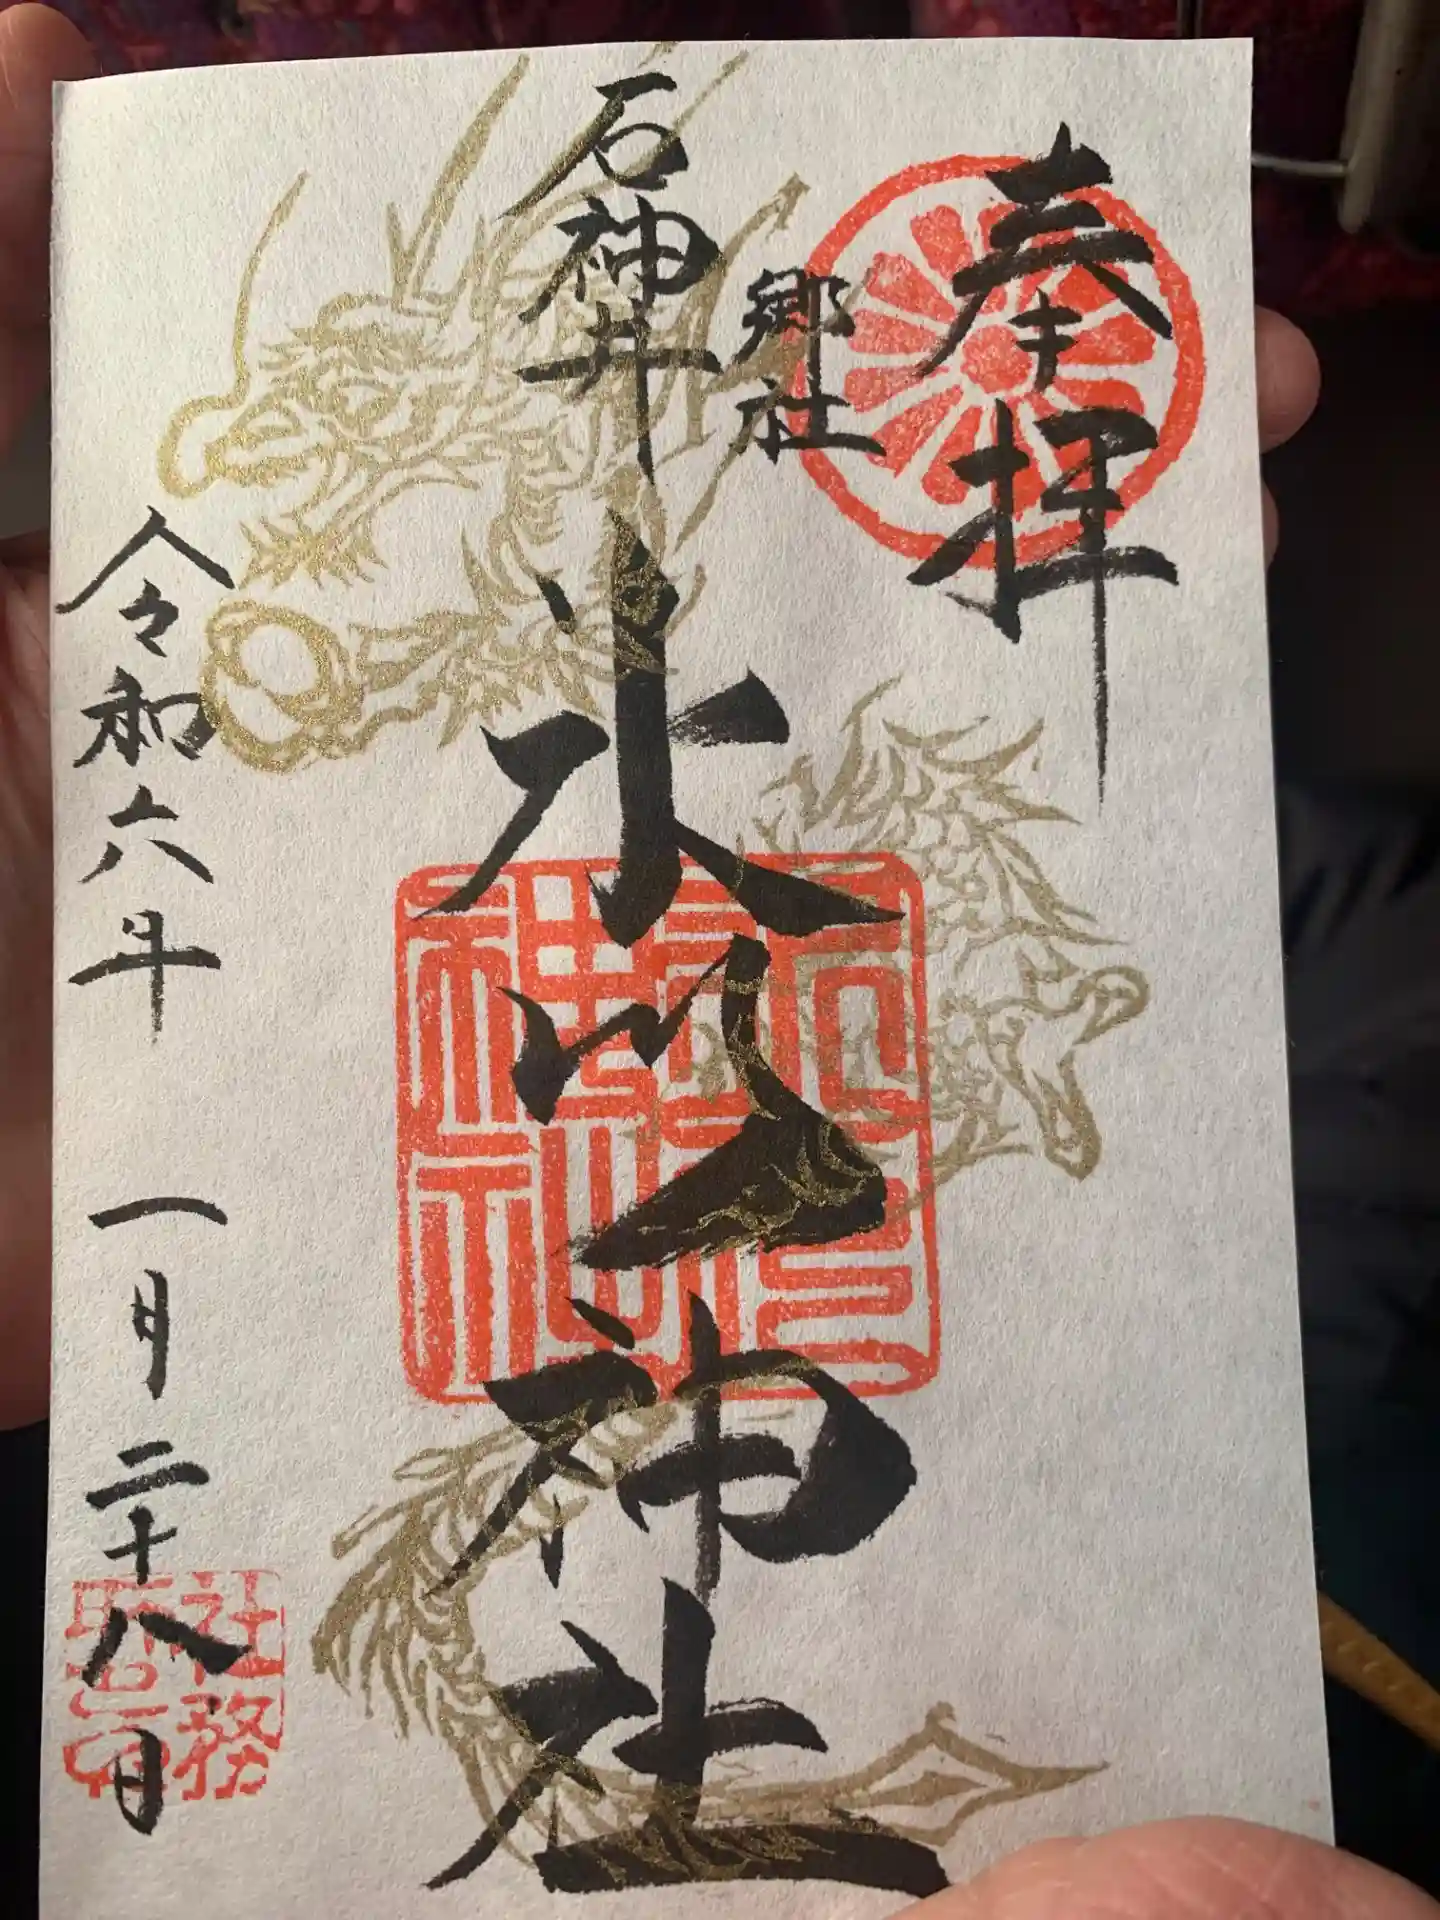 奉拝
郷社
石神井
氷川神社
令和六年 一月二十八日
社務
所之印